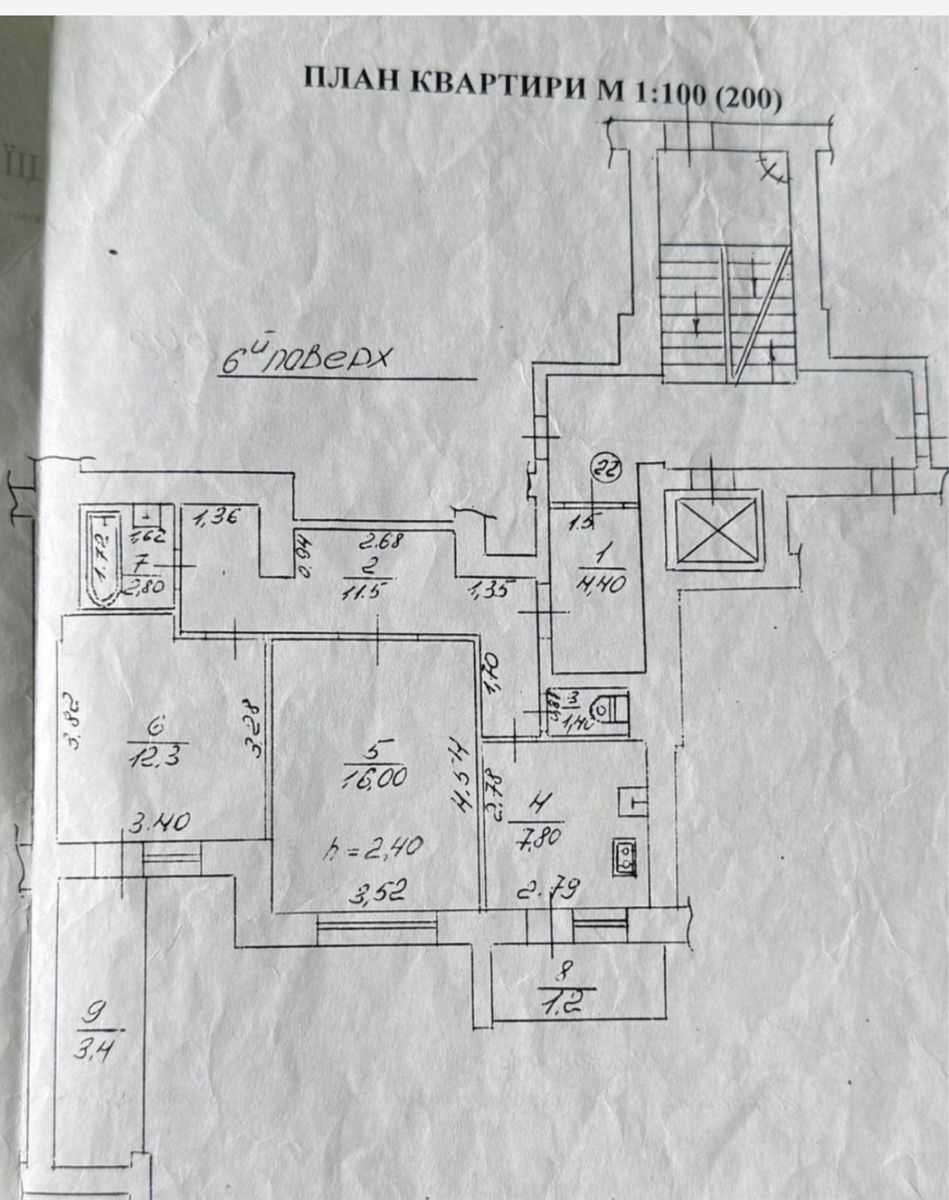 ПЛАН КВАРТИРИ М 1:100 (200)
6й поверх
22
1,36
1,62
1.72
7
2,80
0.94
2.68
2
11.5
1,35
1.5
1
4,40
1,70
0,81
3
1,40
3,82
6
12.3
3.28
3.40
5
16,00
4.54
h = 2,40
3,52
2.78
4
7,80
2.79
8
1,2
9
3,4